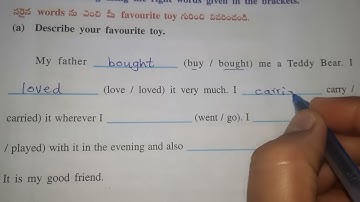 right words given in the brackets.
సరైన words ను ఎంచి మీ favourite toy గురించి వివరించండి.
(a) Describe your favourite toy.
My father bought (buy / bought) me a Teddy Bear. I
loved (love / loved) it very much. I carri carry /
carried) it wherever I (went / go). I
/ played) with it in the evening and also
It is my good friend.